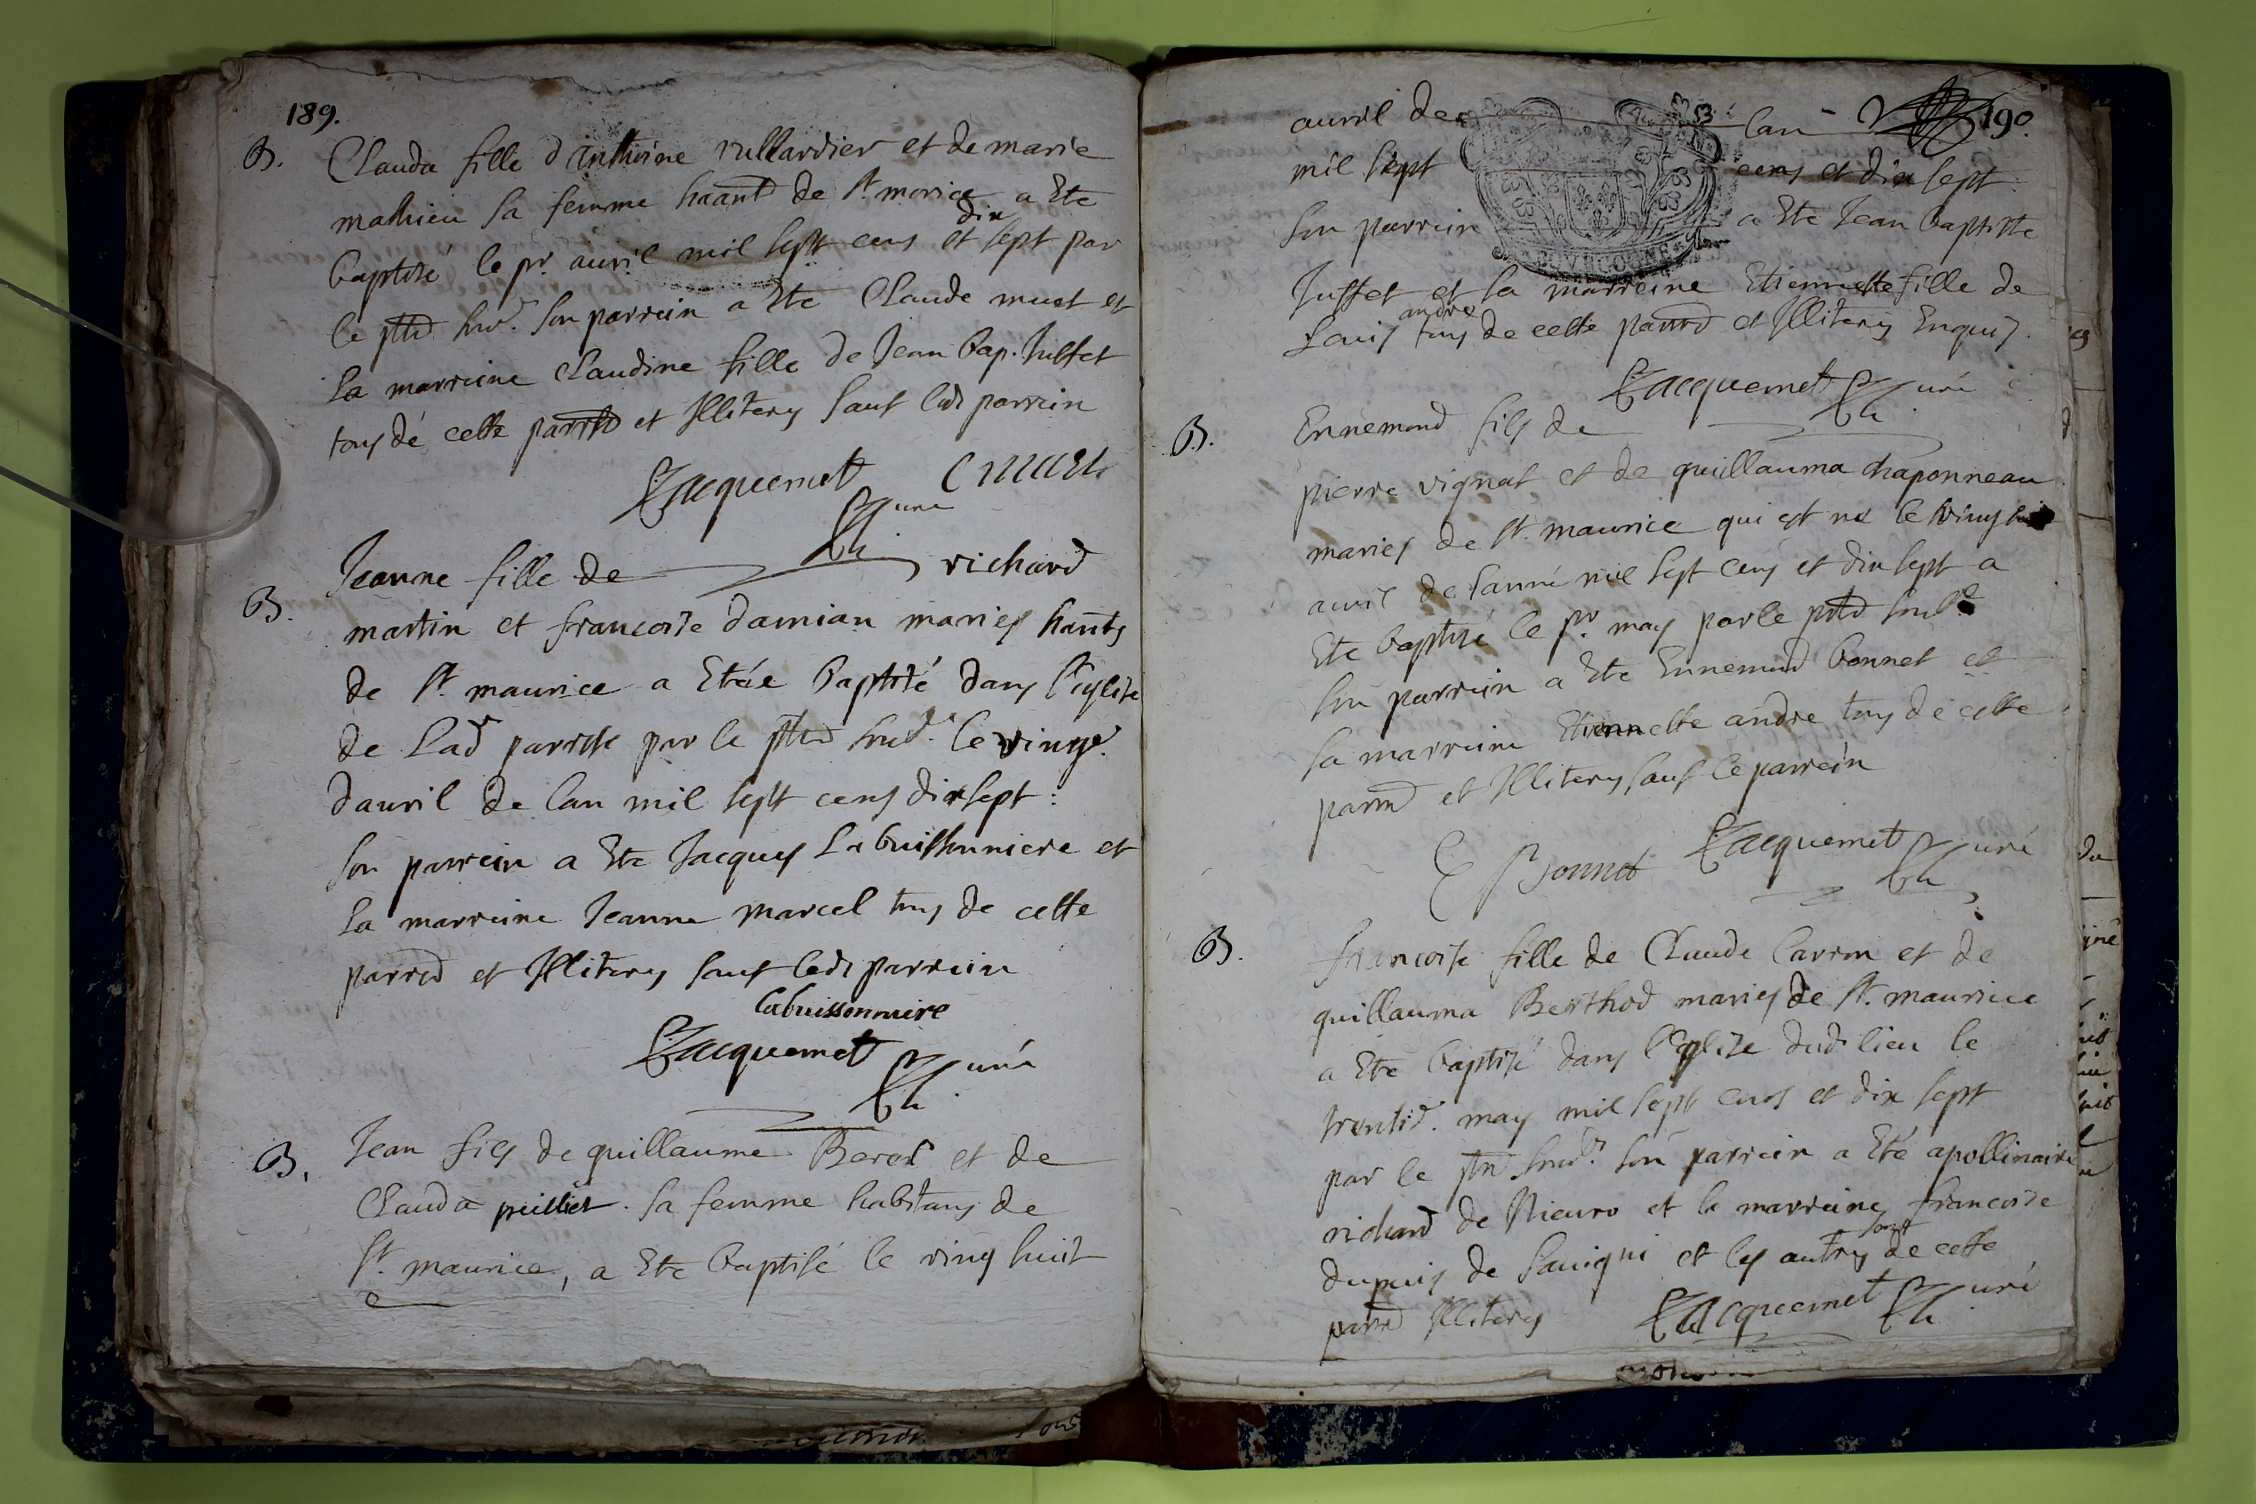 189.
B. Clauda fille d'anthoine vullardier et de marie
mathieu sa femme haantd de st. morice a Ete
baptisé le pr. auril mil sept cens et dix sept par
le ptre sus. son parrein a Ete Claude muet et
la marreine Claudine fille de Jean bap. Juffet
tous dé cette parrsse et Illiterez sauf led parrein
Jacquemet Curé C MUET
B. Jeanne fille de richard
martin et francoise damian mariez hants
de st. maurice a Etée baptisé dans l'eglise
de Lad parrisse par le ptre sus. le vingt
dauril de lan mil sept cens dix sept :
son parrein a Ete Jacques Labuissonniere et
la marreine Jeanne marcel tous de cette
parred et Illiterez sauf ledt parrein
labuissonniere
Jacquemet Curé
B. Jean fils de guillaume Berod et de
Clauda peillet. sa femme habitans de
st. maurice, a Ete baptisé le ving huit
190.
auril de lan
mil sept cens et dix sept :
son parrein a Ete Jean baptiste
Juffet et la marreine Etiennette fille de
Louis andre tous de cette parred et Illiterez Enquis.
Jacquemet Curé
B. Ennemond fils de
pierre vignat et de guillauma chaponneau
mariez de st. maurice qui est né le vingt
auril de lanné mil sept cens et dix sept a
Ete baptisé le pr. may par le ptre sus
son parrein a Ete Ennemond bonnet et
la marreine Etiennette andre tous dé cette
parred et Illiterez sauf le parrein
E Bonnet Jacquemet Curé
B. francoise fille de Claude Carron et de
guillauma Berthod mariez de st. maurice
a Ete baptisé dans l'eglise dud. lieu le
may mil sept cens et dix sept
par le ptre sus. son parrein a Eté apollinaire
richard de et la marreine francoise
dupuis de Sauigni et les autres sont de cette
parred Illiterez Jacquemet Curé